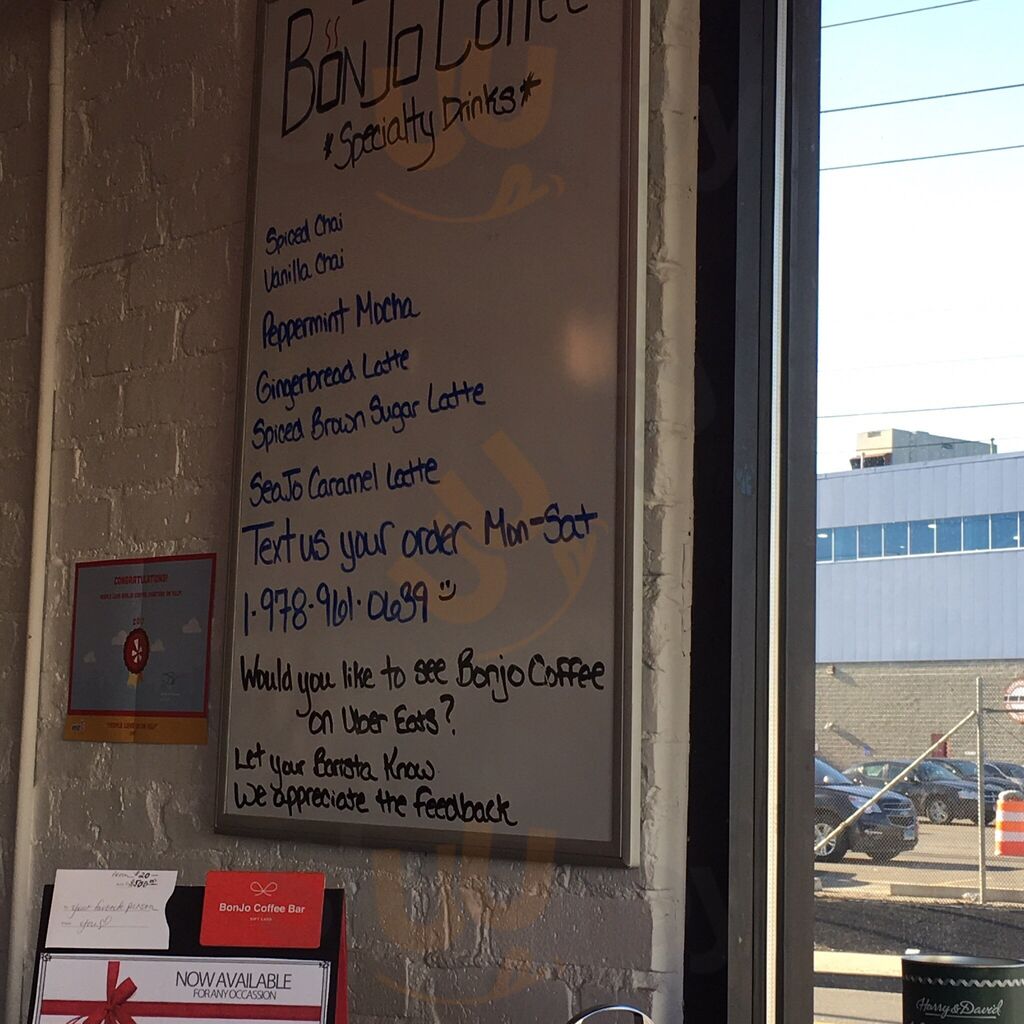 BonJo Coffee
*Specialty Drinks*
Spiced Chai
Vanilla Chai
Peppermint Mocha
Gingerbread Latte
Spiced Brown Sugar Latte
SeaJo Caramel Latte
Text us your order Mon-Sat
1-978-961-0639
Would you like to see Bonjo Coffee
on Uber Eats?
Let your Barista Know
We appreciate the feedback
CONGRATULATIONS!
2017
"PEOPLE LOVE US ON YELP"
$20
$500.00
Your favorite person
you
BonJo Coffee Bar
GIFT CARD
NOW AVAILABLE
FOR ANY OCCASSION
Harry & David